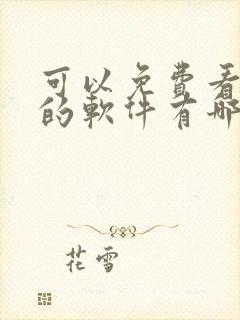 可以免費看
的軟件有哪
花雪